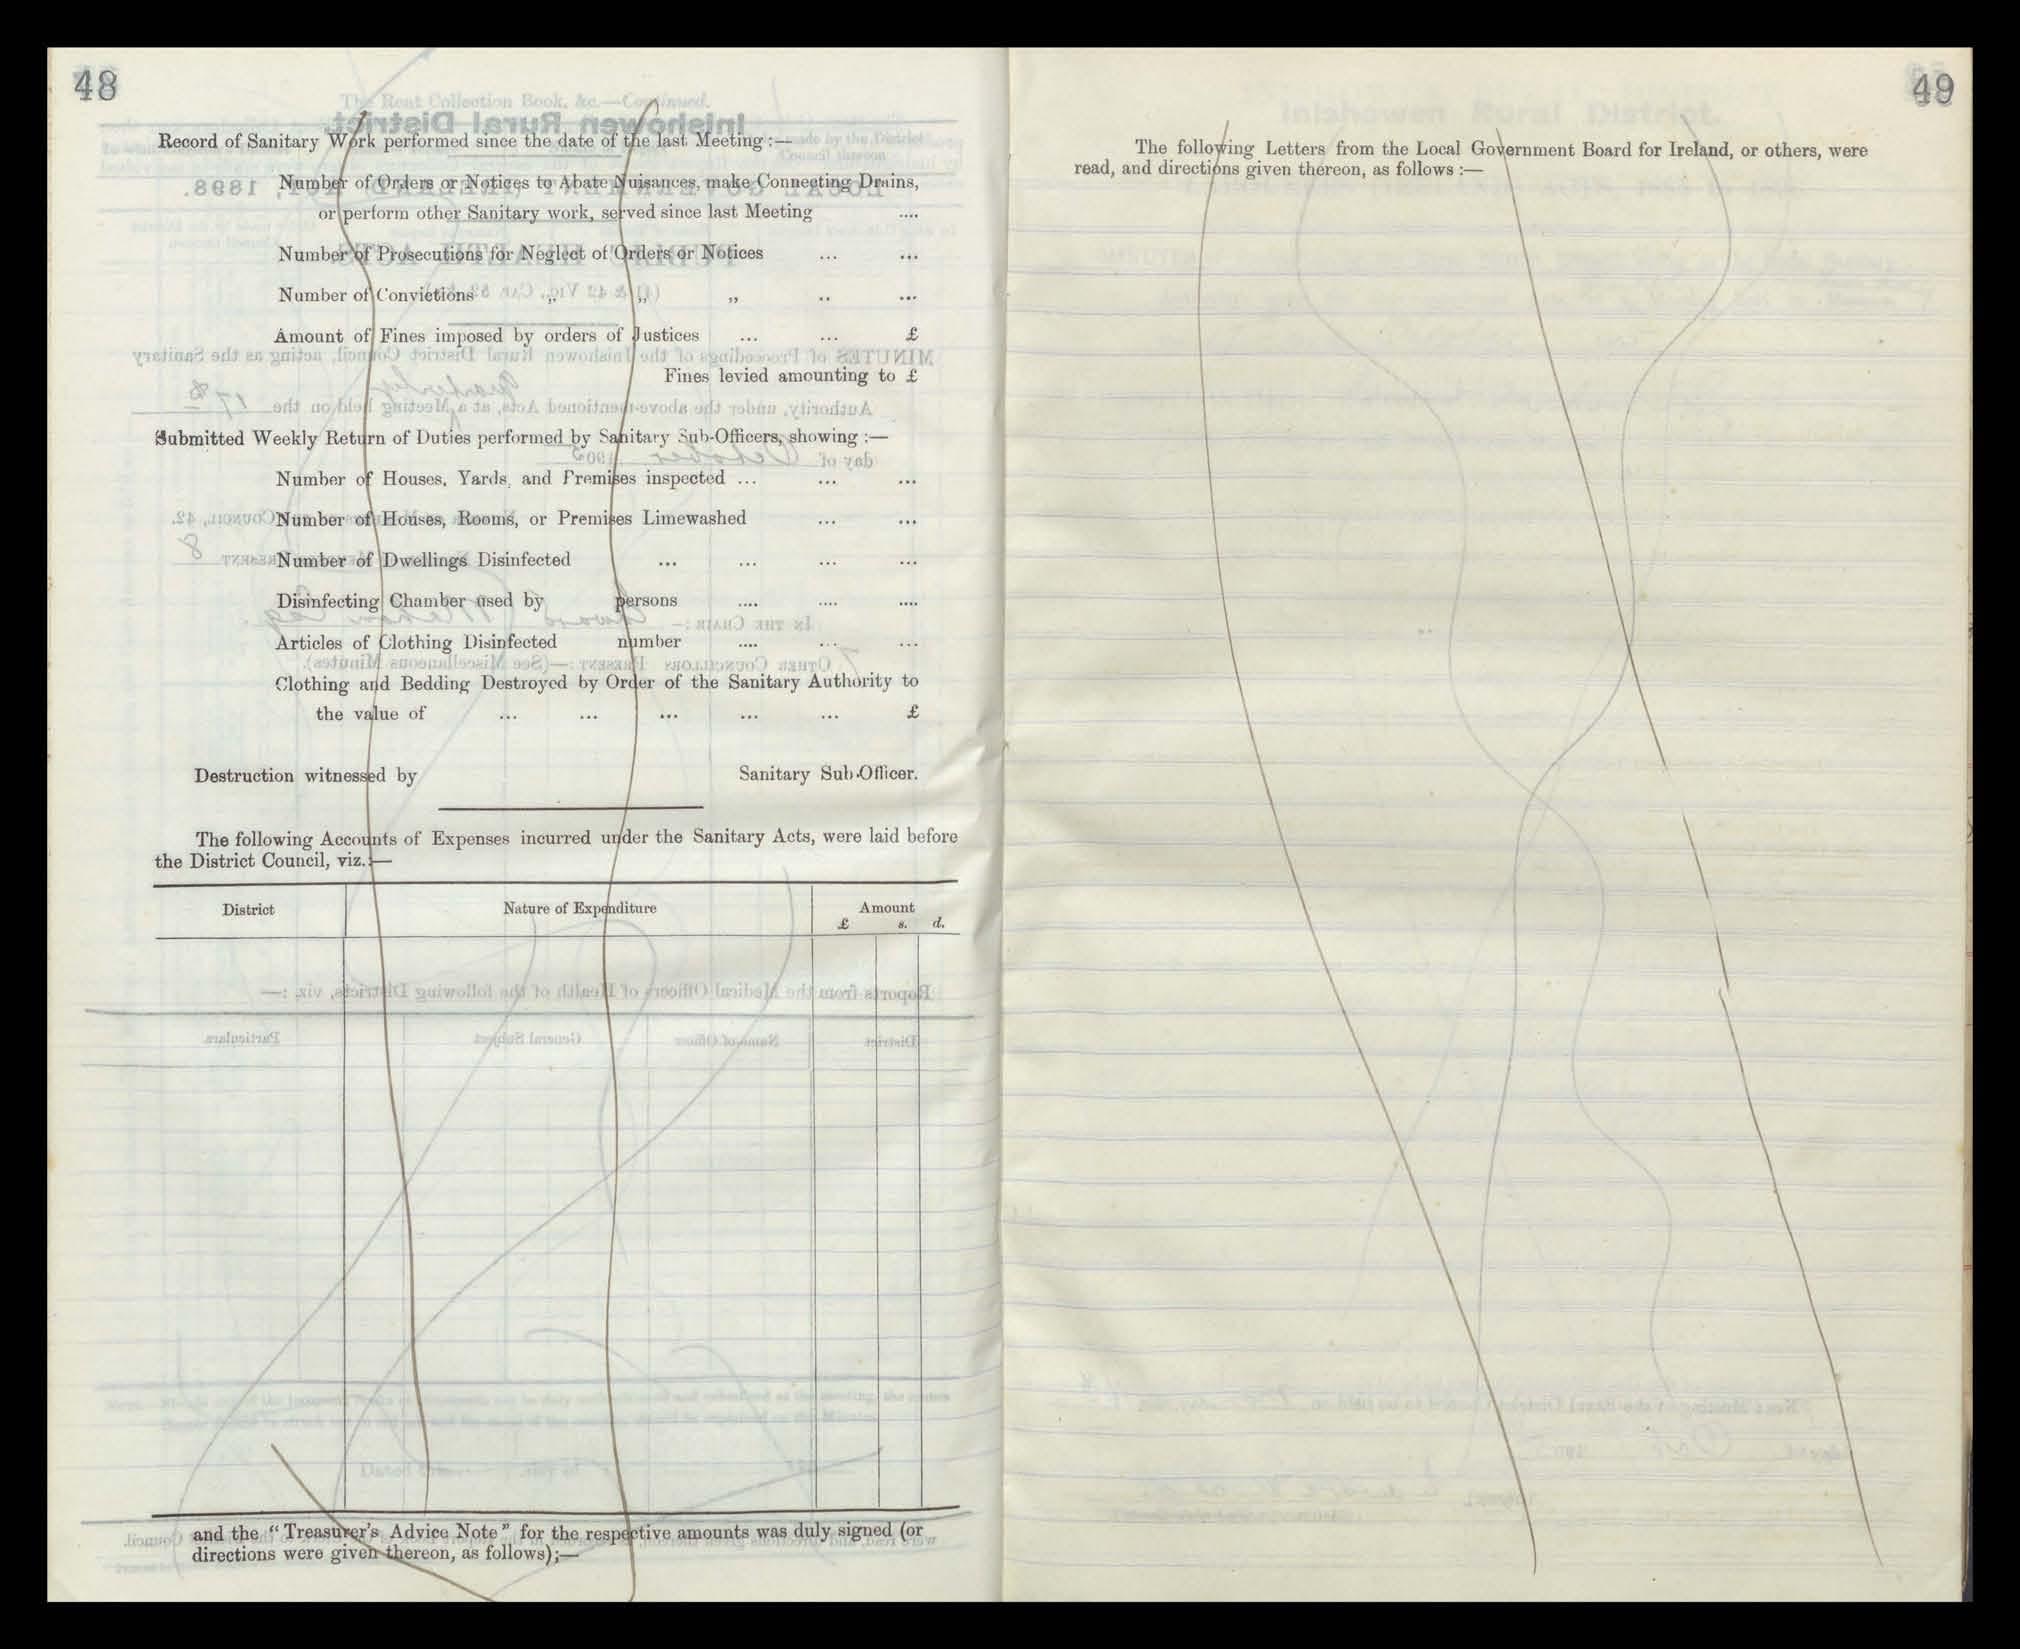 48
Record of Sanitary Work performed since the date of the last Meeting :—
Number of Orders or Notices to Abate Nuisances, make Connecting Drains,
or perform other Sanitary work, served since last Meeting ....
Number of Prosecutions for Neglect of Orders or Notices ... ...
Number of Convictions „ „ „ .. ...
Amount of Fines imposed by orders of Justices ... ... £
Fines levied amounting to £
Submitted Weekly Return of Duties performed by Sanitary Sub-Officers, showing :—
Number of Houses, Yards, and Premises inspected ... ... ...
Number of Houses, Rooms, or Premises Limewashed ... ...
Number of Dwellings Disinfected ... ... ... ...
Disinfecting Chamber used by persons .... .... ....
Articles of Clothing Disinfected number .... ... ...
Clothing and Bedding Destroyed by Order of the Sanitary Authority to
the value of ... ... ... ... ... £
Destruction witnessed by Sanitary Sub-Officer.
The following Accounts of Expenses incurred under the Sanitary Acts, were laid before
the District Council, viz.:—
District Nature of Expenditure Amount
£ s. d.
and the “Treasurer's Advice Note” for the respective amounts was duly signed (or
directions were given thereon, as follows);—
49
The following Letters from the Local Government Board for Ireland, or others, were
read, and directions given thereon, as follows :—